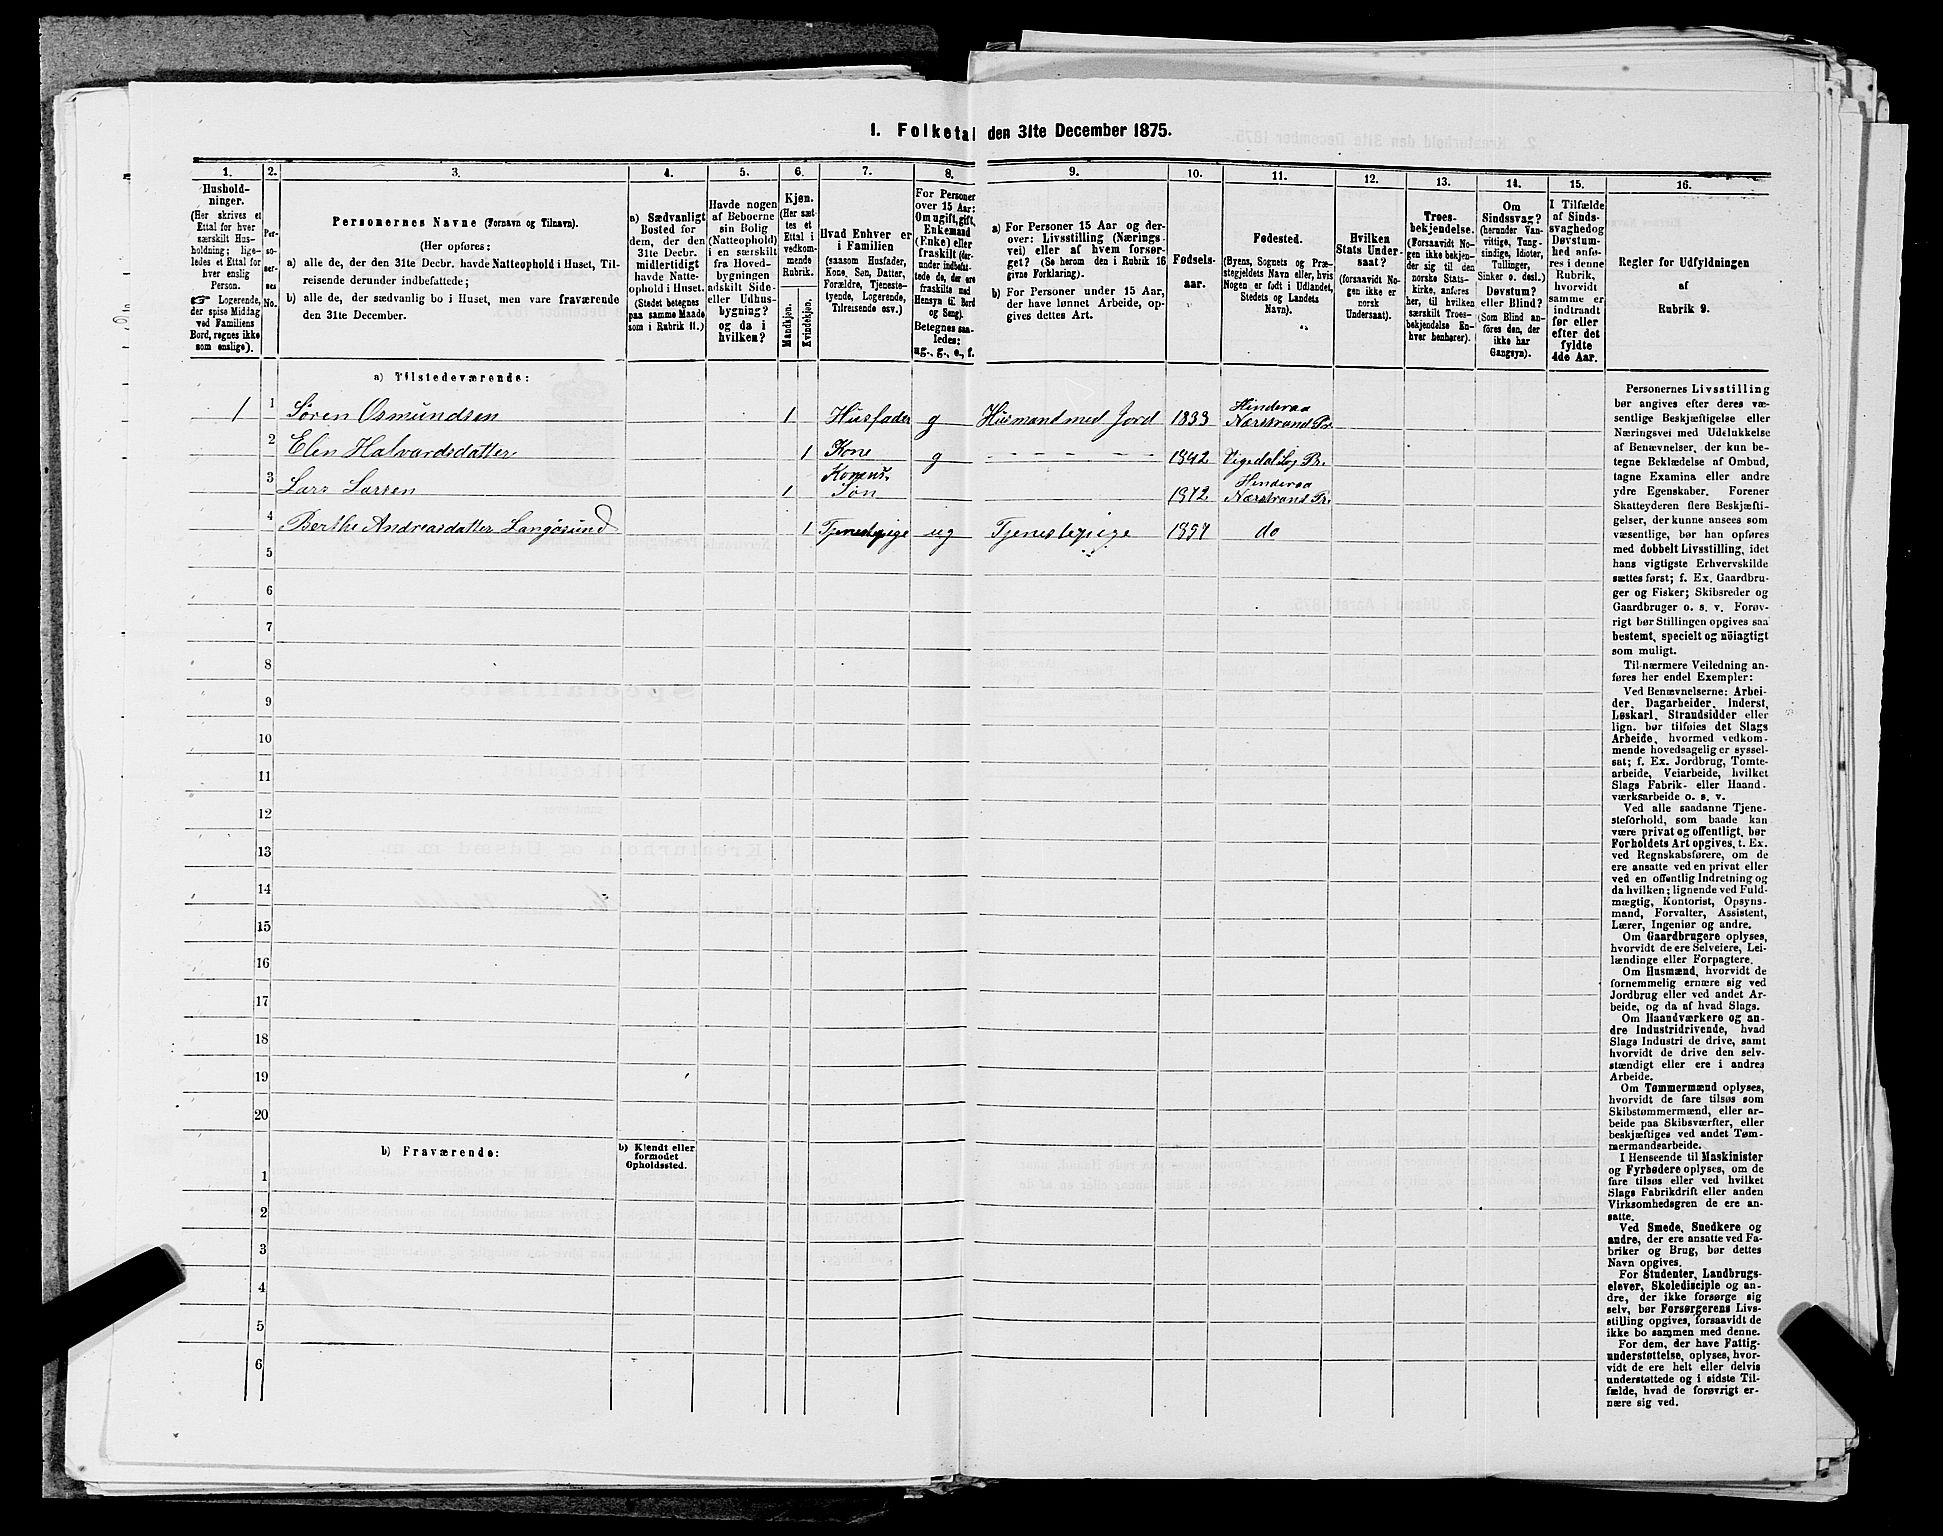 I. Folketal den 31te December 1875.
1.
Hushold-
ninger.
(Her skrives et
Ettal for hver
særskilt Hus-
holdning; lige-
ledes et Ettal for
hver enslig
Person.
☞ Logerende,
der spise Middag
ved Familiens
Bord, regnes ikke
som enslige).
2.
Per-
so-
ner-
nes
No.
3.
Personernes Navne (Fornavn og Tilnavn).
(Her opføres:
a) alle de, der den 31te Decbr. havde Natteophold i Huset, Til-
reisende derunder indbefattede;
b) alle de, der sædvanlig bo i Huset, men vare fraværende
den 31te December.
4.
a) Sædvanligt
Bosted for
dem, der den
31te Decbr.
midlertidigt
havde Natte-
ophold i Huset.
(Stedet betegnes
paa samme Maade
som i Rubrik 11.)
5.
Havde nogen
af Beboerne
sin Bolig
(Natteophold)
i en særskilt
fra Hoved-
bygningen
adskilt Side-
eller Udhus-
bygning?
og da i
hvilken?
6.
Kjøn.
(Her sæt-
tes et
Ettal i
vedkom-
mende
Rubrik.
Mandkjøn.
Kvindekjøn.
7.
Hvad Enhver er
i Familien
(saasom Husfader,
Kone, Søn, Datter,
Forældre, Tjeneste-
tyende, Logerende,
Tilreisende osv.)
8.
For Personer
over 15 Aar:
Om ugift, gift,
Enkemand
(Enke) eller
fraskilt (der-
under indbefat-
tede de, der ere
fraskilte med
Hensyn til Bord
og Seng).
Betegnes saa-
ledes:
ug., g., e., f.
9.
a) For Personer 15 Aar og der-
over: Livsstilling (Nærings-
vei) eller af hvem forsør-
get? (Se herom den i Rubrik 16
givne Forklaring).
b) For Personer under 15 Aar,
der have lønnet Arbeide, op-
gives dettes Art.
10.
Fødsels-
aar.
11.
Fødested.
(Byens, Sognets og Præ-
stegjeldets Navn eller, hvis
Nogen er født i Udlandet,
Stedets og Landets
Navn).
12.
Hvilken
Stats Under-
saat?
(forsaavidt No-
gen ikke er
norsk
Undersaat).
13.
Troes-
bekjendelse.
(Forsaavidt No-
gen ikke bekjen-
der sig til den
norske Stats-
kirke, anføres
her, til hvilken
særskilt Troes-
bekjendelse En-
hver henhører).
14.
Om
Sindssvag?
(herunder Van-
vittige, Tung-
sindige, Idioter,
Tullinger,
Sinker o. desl.)
Døvstum?
eller Blind?
(Som Blind an-
føres den, der
ikke har
Gangsyn).
15.
I Tilfælde
af Sinds-
svaghed og
Døvstum-
hed anfø-
res i denne
Rubrik,
hvorvidt
samme er
indtraadt
før eller
efter det
fyldte
4de Aar.
16.
Regler for Udfyldningen
af
Rubrik 9.
a) Tilstedeværende:
1 1 Søren Osmundsen 1 Husfader g Husmand med Jord 1833 Hinderaa Nærstrand Pr.
2 Elen Halvardsdatter 1 Kone g - - - - - 1842 Vigedal S. o. Pr.
3 Lars Larsen 1 Konens Søn 1872 Hinderaa Nærstrand Pr.
4 Berthe Andreasdatter Langøsund 1 Tjenestepige ug Tjenestepige 1857 do
5
6
7
8
9
10
11
12
13
14
15
16
17
18
19
20
b) Fraværende:
b) Kjendt eller
formodet
Opholdssted.
1
2
3
4
5
6
Personernes Livsstilling
bør angives efter deres væ-
sentlige Beskjæftigelse eller
Næringsvei med Udelukkelse
af Benævnelser, der kun be-
tegne Beklædelse af Ombud,
tagne Examina eller andre
ydre Egenskaber. Forener
Skatteyderen flere Beskjæfti-
gelser, der kunne ansees som
væsentlige, bør han opføres
med dobbelt Livsstilling, idet
hans vigtigste Erhvervskilde
sættes først; f. Ex. Gaardbru-
ger og Fisker; Skibsreder og
Gaardbruger o. s. v. Forøv-
rigt bør Stillingen opgives saa
bestemt, specielt og nöiagtigt
som muligt.
Til nærmere Veiledning an-
føres her endel Exempler:
Ved Benævnelserne: Arbei-
der, Dagarbeider, Inderst,
Løskarl, Strandsidder eller
lign. bør tilføies det Slags
Arbeide, hvormed vedkom-
mende hovedsagelig er syssel-
sat; f. Ex. Jordbrug, Tomte-
arbeide, Veiarbeide, hvilket
Slags Fabrik- eller Haand-
værksarbeide o. s. v.
Ved alle saadanne Tjene-
steforhold, som baade kan
være privat og offentligt, bør
Forholdets Art opgives, t. Ex.
ved Regnskabsførere, om de
ere ansatte ved en privat eller
ved en offentlig Indretning og
da hvilken; lignende ved Fuld-
mægtig, Kontorist, Opsyns-
mand, Forvalter, Assistent,
Lærer, Ingeniør og andre.
Om Gaardbrugere oplyses,
hvorvidt de ere Selveiere, Lei-
lændinge eller Forpagtere.
Om Husmænd, hvorvidt de
fornemmelig ernære sig ved
Jordbrug eller ved andet Ar-
beide, og da af hvad Slags.
Om Haandværkere og an-
dre Industridrivende, hvad
Slags Industri de drive, samt
hvorvidt de drive den selv-
stændigt eller ere i andres
Arbeide.
Om Tømmermænd oplyses,
hvorvidt de fare tilsøs som
Skibstømmermænd, eller ar-
beide paa Skibsværfter, eller
beskjæftiges ved andet Tøm-
mermandsarbeide.
I Henseende til Maskinister
og Fyrbødere oplyses, om de
fare tilsøs eller ved hvilket
Slags Fabrikdrift eller anden
Virksomhedsgren de ere an-
satte.
Ved Smede, Snedkere og
andre, der ere ansatte ved Fa-
briker og Brug, bør dettes
Navn opgives.
For Studenter, Landbrugs-
elever, Skoledisciple og an-
dre, der ikke forsørge sig
selv, bør Forsørgerens Livs-
stilling opgives, forsaavidt de
ikke bo sammen med denne.
For dem, der have Fattig-
understøttelse, oplyses, hvor-
vidt de ere helt eller delvis
understøttede og i sidste Til-
fælde, hvad de forøvrigt er-
nære sig ved.